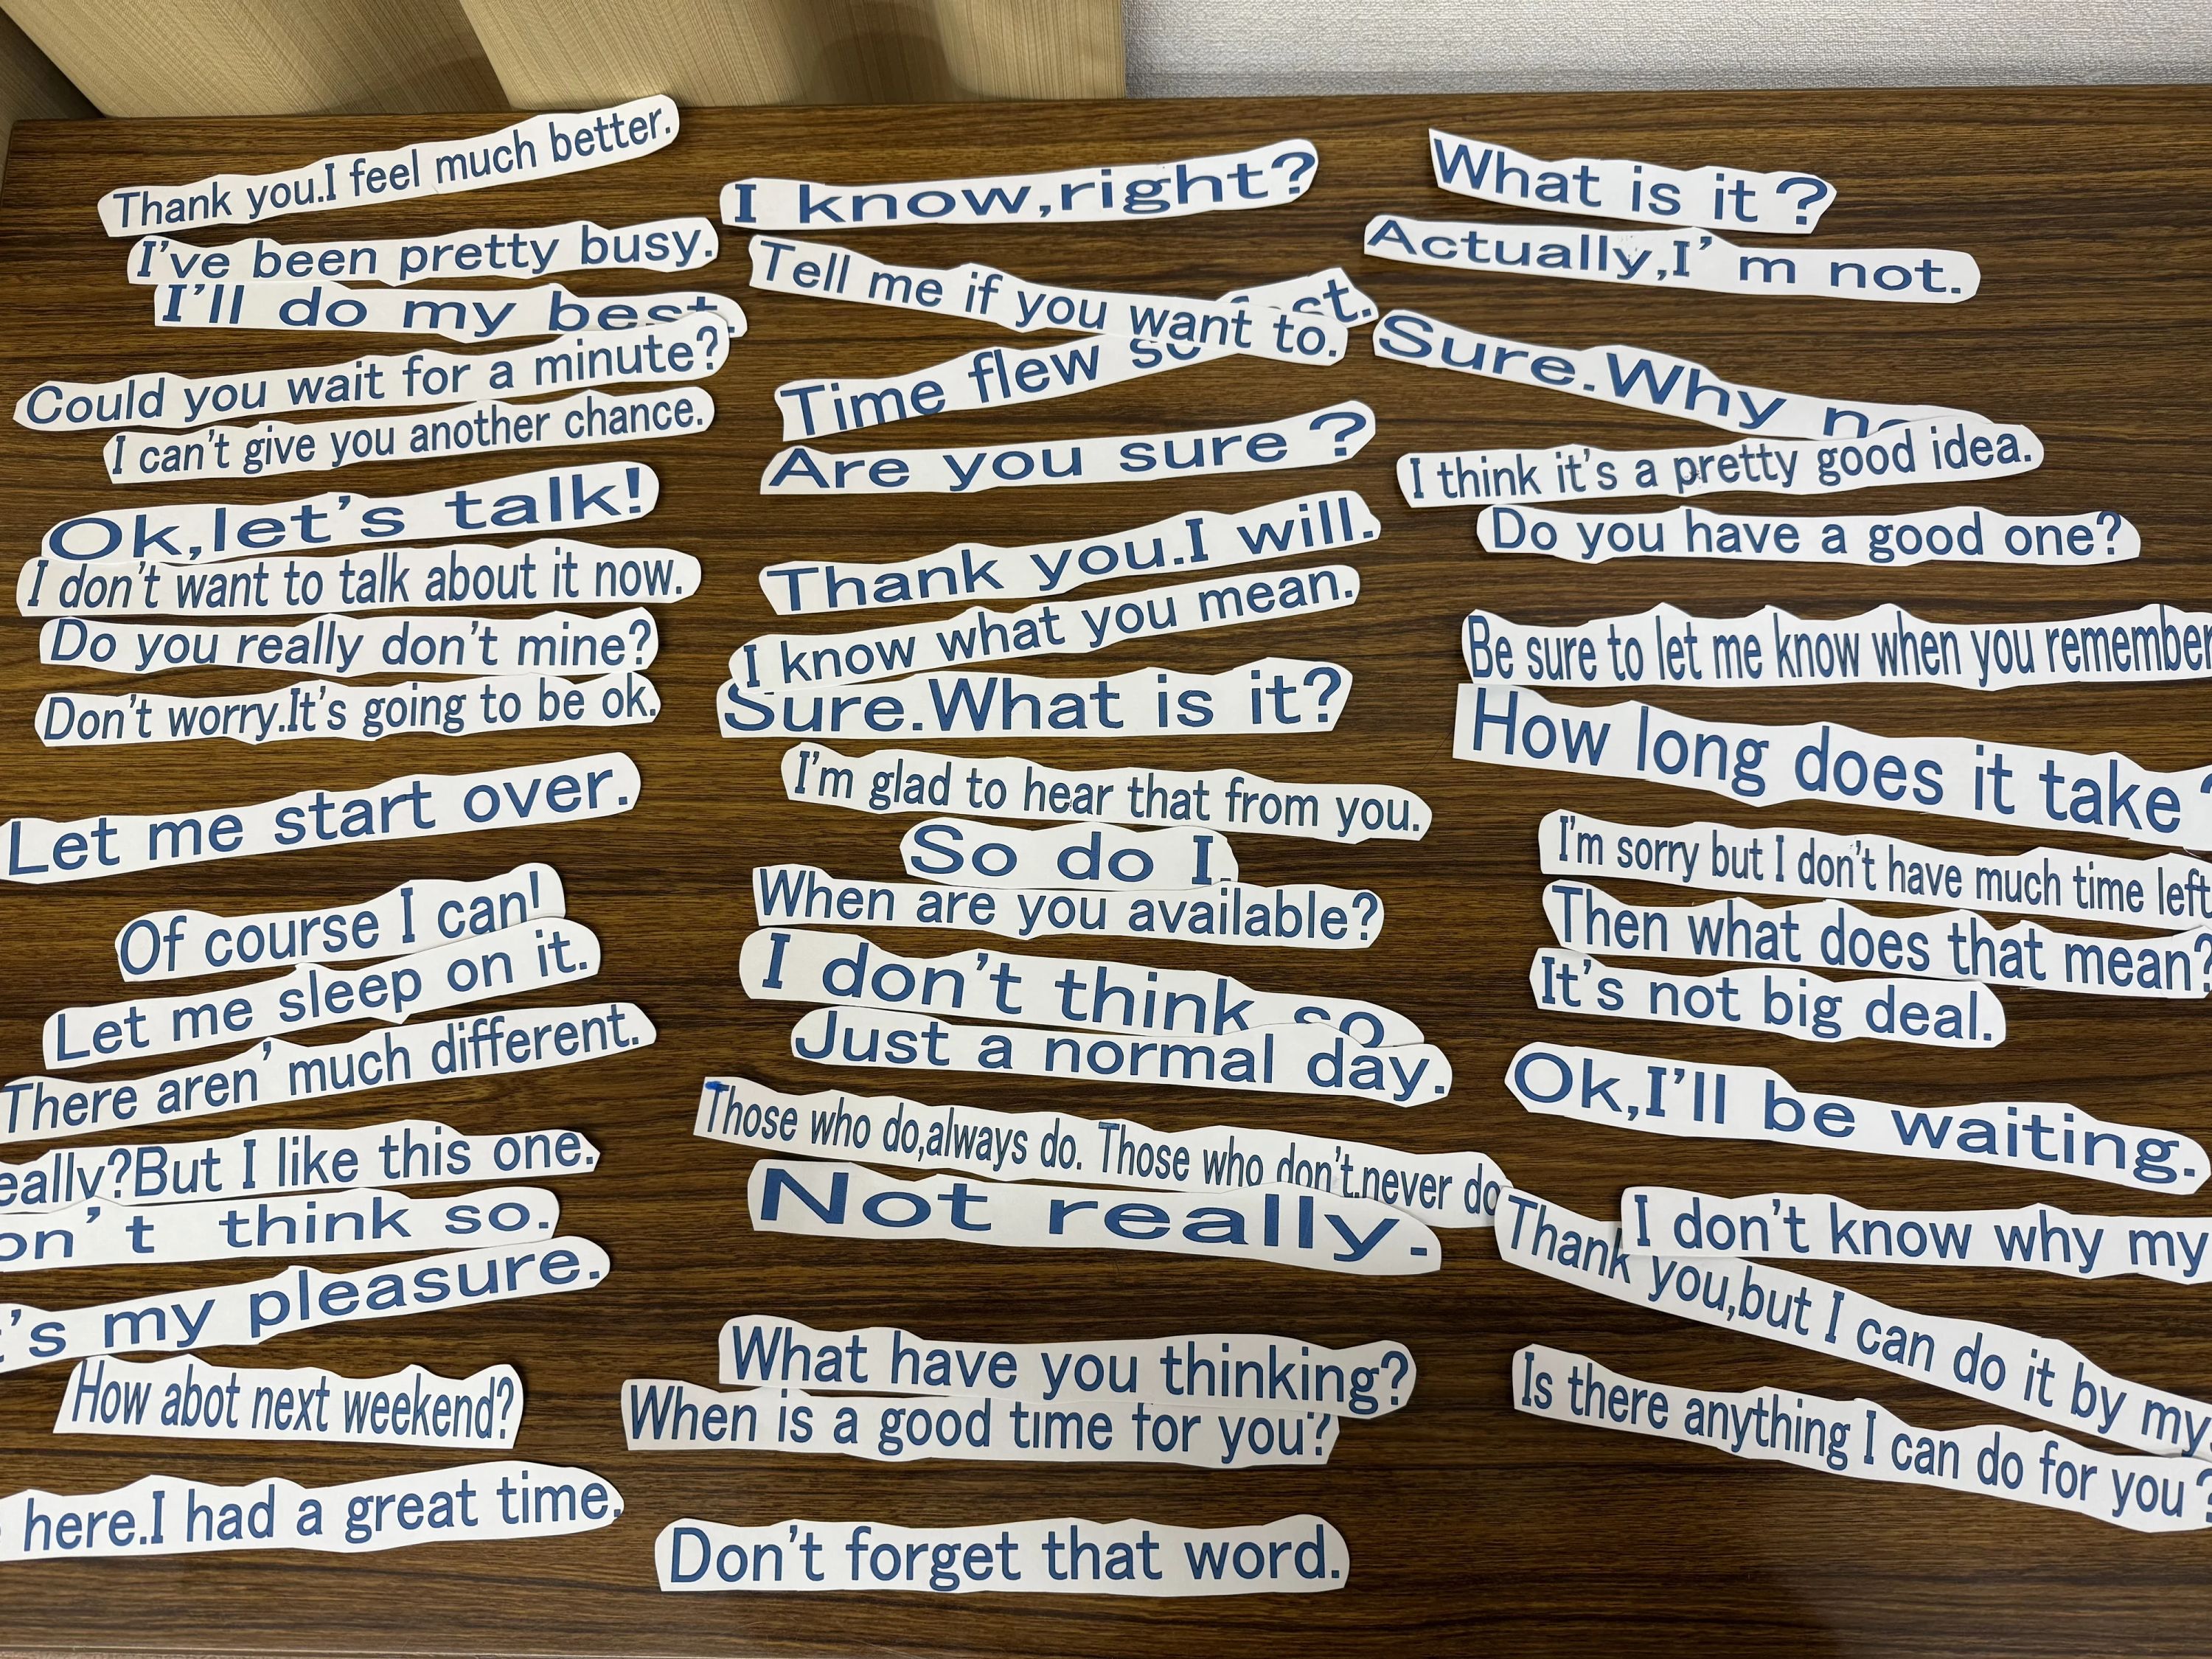 Thank you.I feel much better.
I've been pretty busy.
I'll do my best.
Could you wait for a minute?
I can't give you another chance.
Ok,let's talk!
I don't want to talk about it now.
Do you really don't mine?
Don't worry.It's going to be ok.
Let me start over.
Of course I can!
Let me sleep on it.
There aren' much different.
eally?But I like this one.
on't think so.
t's my pleasure.
How abot next weekend?
here.I had a great time.
I know,right?
Tell me if you want to.
Time flew so st.
Are you sure?
Thank you.I will.
I know what you mean.
Sure.What is it?
I'm glad to hear that from you.
So do I.
When are you available?
I don't think so
Just a normal day.
Those who do,always do. Those who don't.never do
Not really.
What have you thinking?
When is a good time for you?
Don't forget that word.
What is it?
Actually,I'm not.
Sure.Why
I think it's a pretty good idea.
Do you have a good one?
Be sure to let me know when you remember
How long does it take?
I'm sorry but I don't have much time left
Then what does that mean?
It's not big deal.
Ok,I'll be waiting.
I don't know why my
Thank you,but I can do it by my
Is there anything I can do for you?